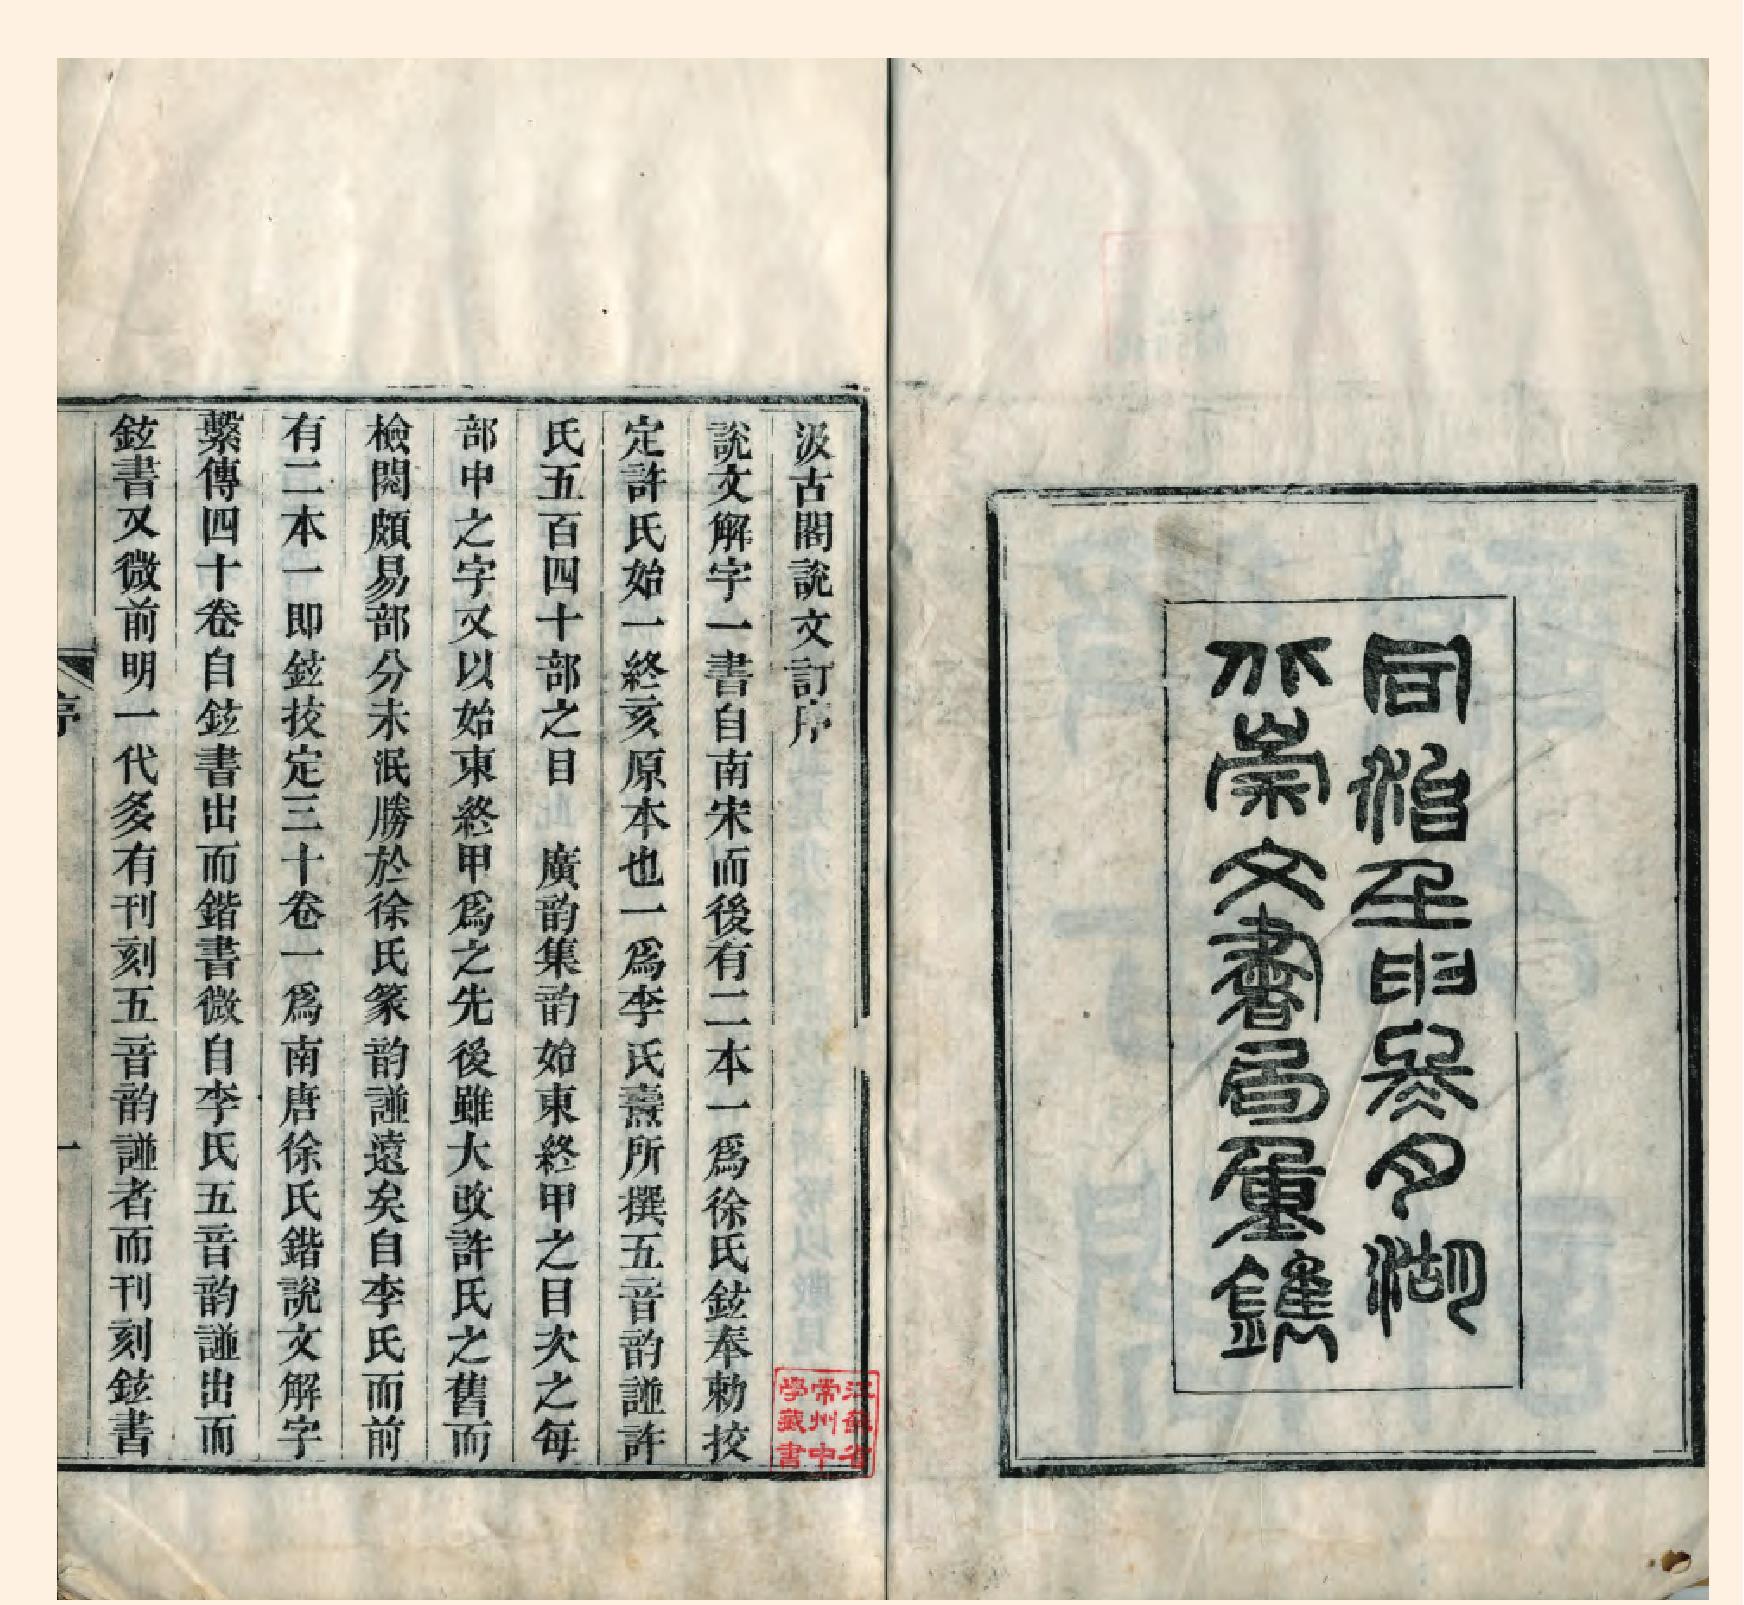 同治壬申㕘月湖
北崇文書局重鐫
汲古閣說文訂序
說文解字一書自南宋而後有二本一爲徐氏鉉奉勅挍
定許氏始一終亥原本也一爲李氏燾所撰五音韵譜許
氏五百四十部之目 廣韵集韵始東終甲之目次之每
部中之字又以始東終甲爲之先後雖大改許氏之舊而
檢閱頗易部分未泯勝於徐氏篆韵譜遠矣自李氏而前
有二本一即鉉挍定三十卷一爲南唐徐氏鍇說文解字
繫傳四十卷自鉉書出而鍇書微自李氏五音韵譜出而
鉉書又微前明一代多有刊刻五音韵譜者而刊刻鉉書
序
一
江蘇省
常州中
學藏書